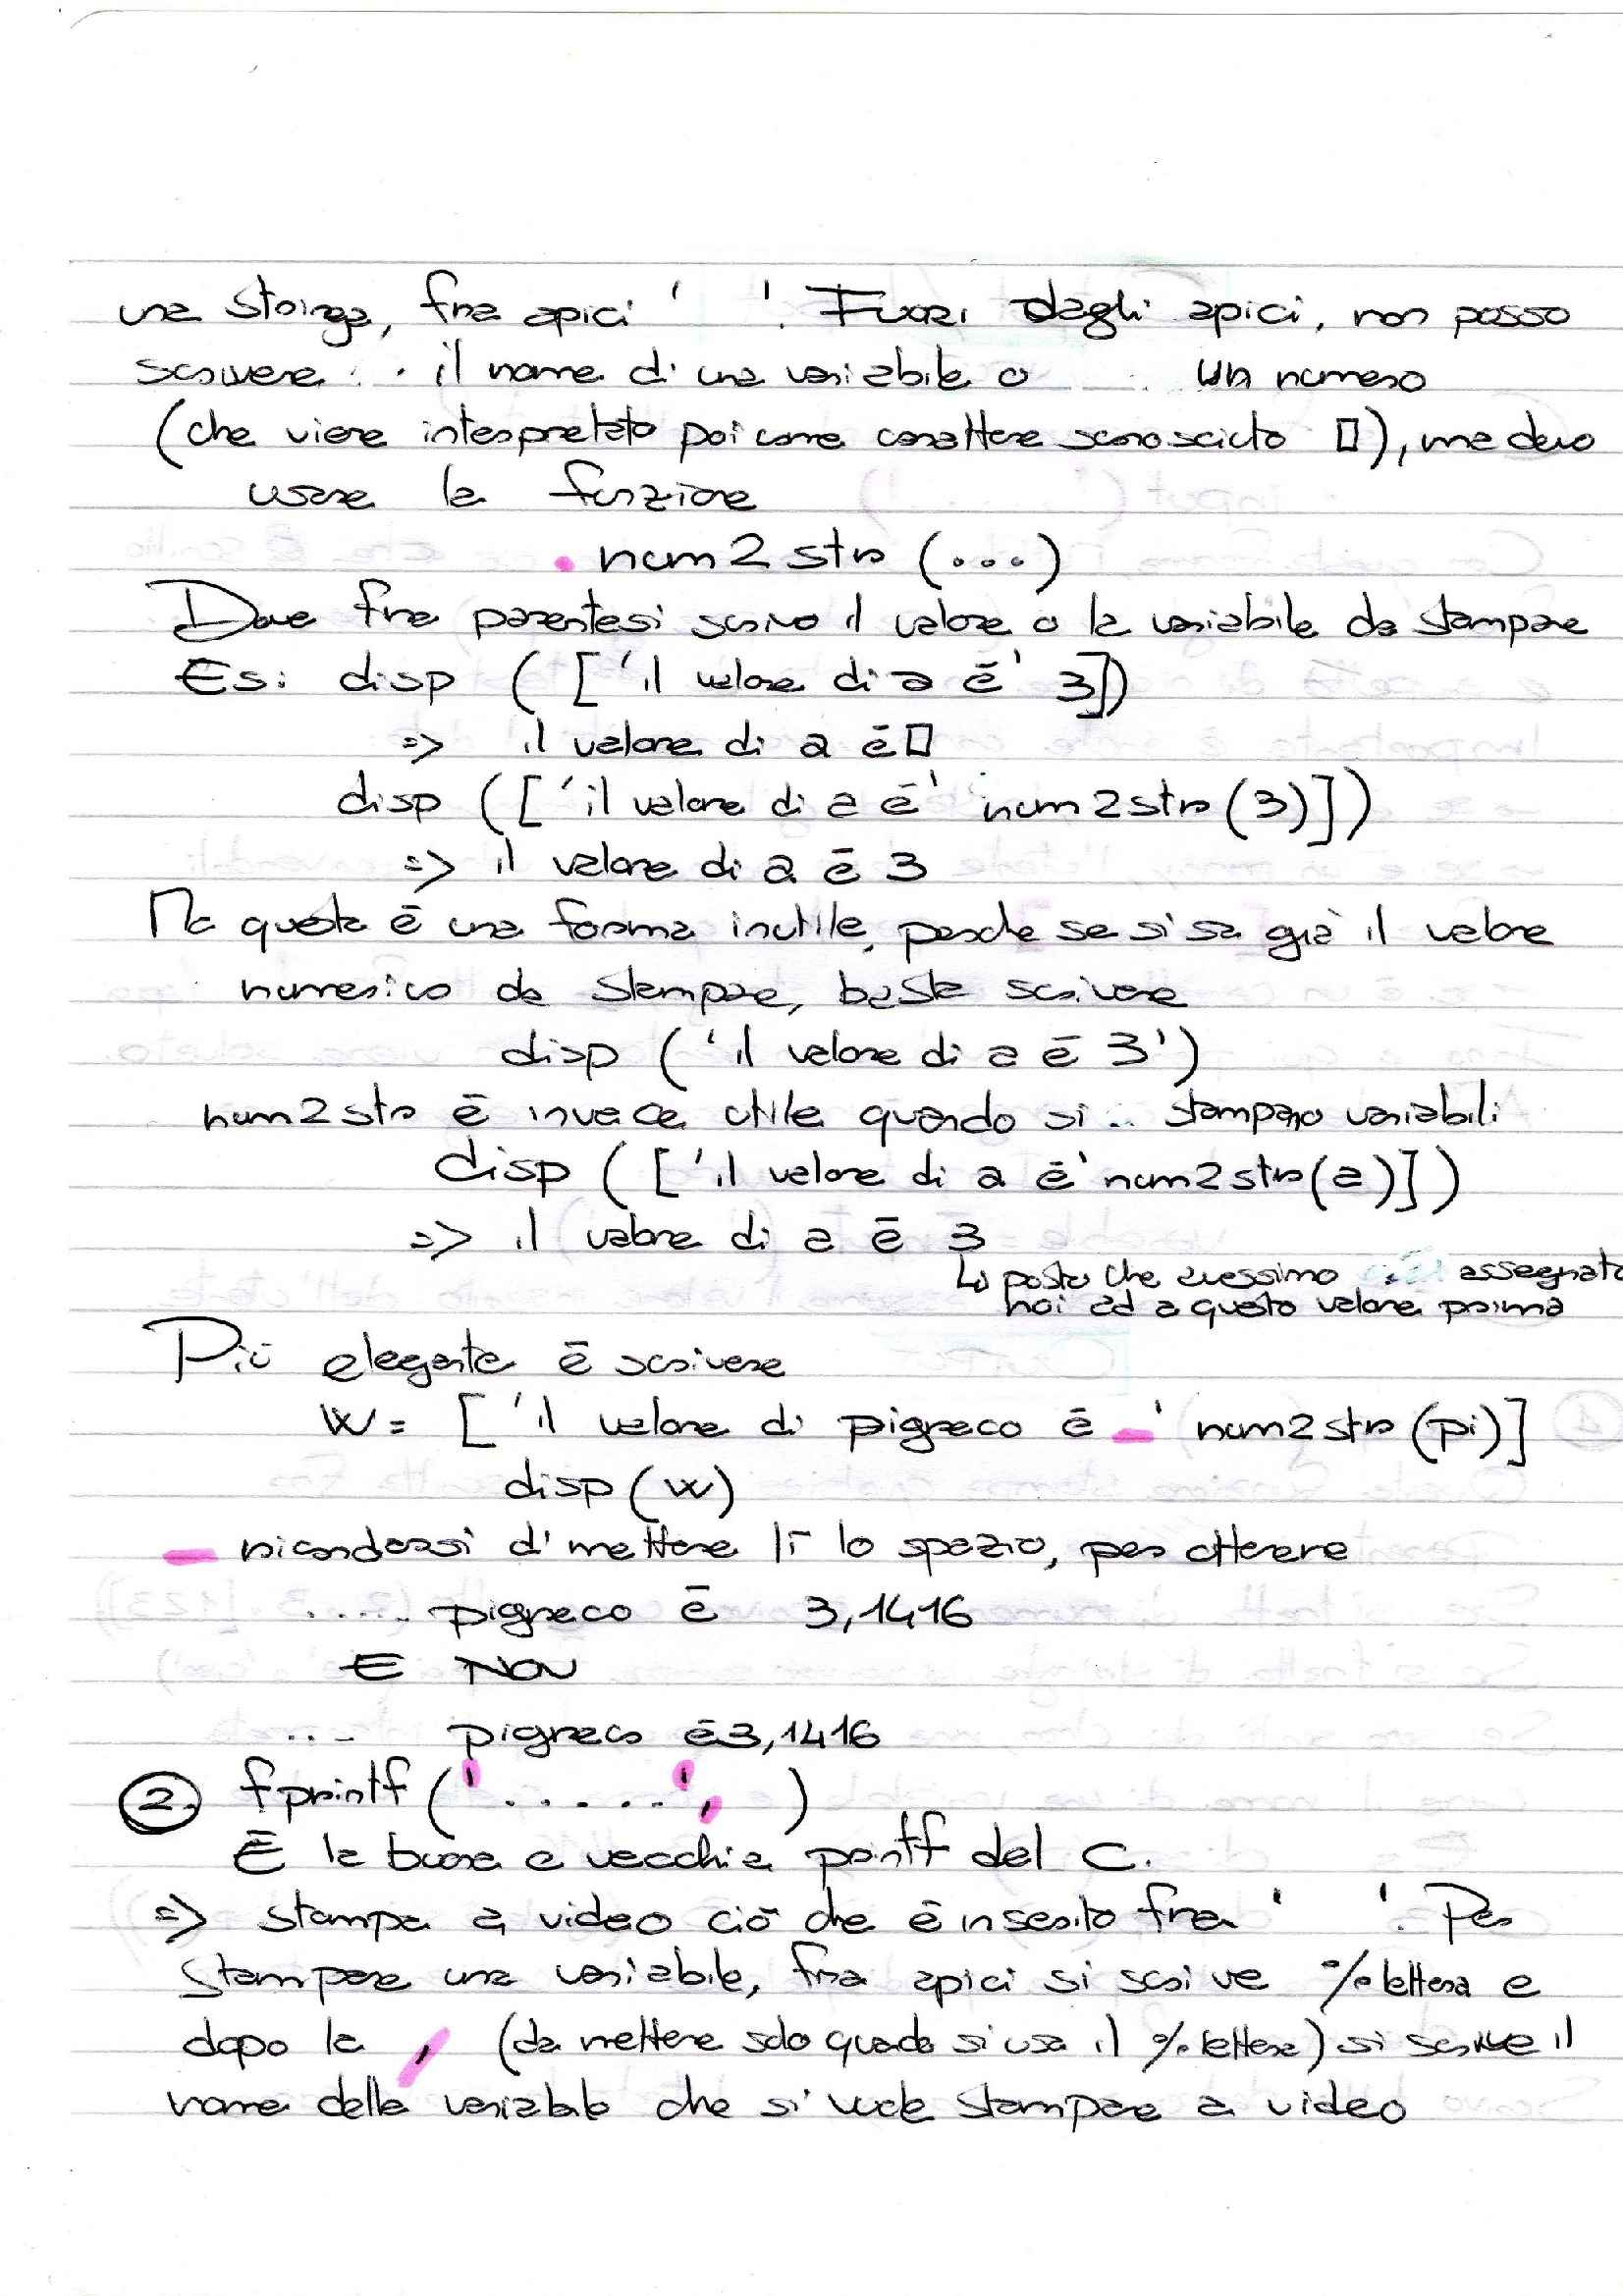 una stringa, fra apici ' '. Fuori dagli apici, non posso
scrivere il nome di una variabile o un numero
(che viene interpretato poi come carattere sconosciuto □), ma devo
usare la funzione
• num2str (...)
Dove fra parentesi scrivo il valore o la variabile da stampare
Es: disp (['il valore di a è' 3])
=> il valore di a è□
disp (['il valore di a è' num2str(3)])
=> il valore di a è 3
Ma questa è una forma inutile, perche se si sa già il valore
numerico da stampare, basta scrivere
disp ('il valore di a è 3')
num2str è invece utile quando si .. stampano variabili
disp (['il valore di a è' num2str(a)])
=> il valore di a è 3
↳ posto che avessimo assegnato
noi ad a questo valore prima
Più elegante è scrivere
W = ['il valore di pigreco è _' num2str(pi)]
disp(w)
_ ricordarsi di mettere lì lo spazio, per ottenere
..... pigreco è 3,1416
E NON
... pigreco è3,1416
2. fprintf ('.....', )
È la buona e vecchia printf del C.
=> stampa a video ciò che è inserito fra ' '. Per
stampare una variabile, fra apici si scrive %lettera e
dopo la , (da mettere solo quando si usa il %lettera) si scrive il
nome della variabile che si vuole stampare a video